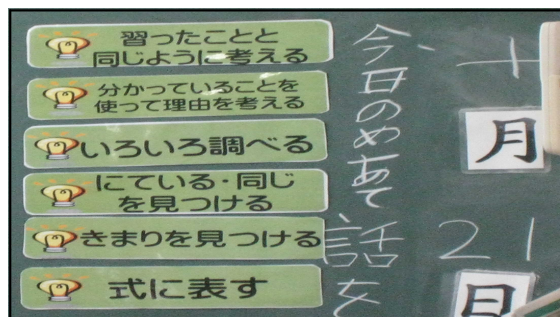 習ったことと
同じように考える
分かっていることを
使って理由を考える
いろいろ調べる
にている・同じ
を見つける
きまりを見つける
式に表す
今日のめあて
話を
十
月
21
日